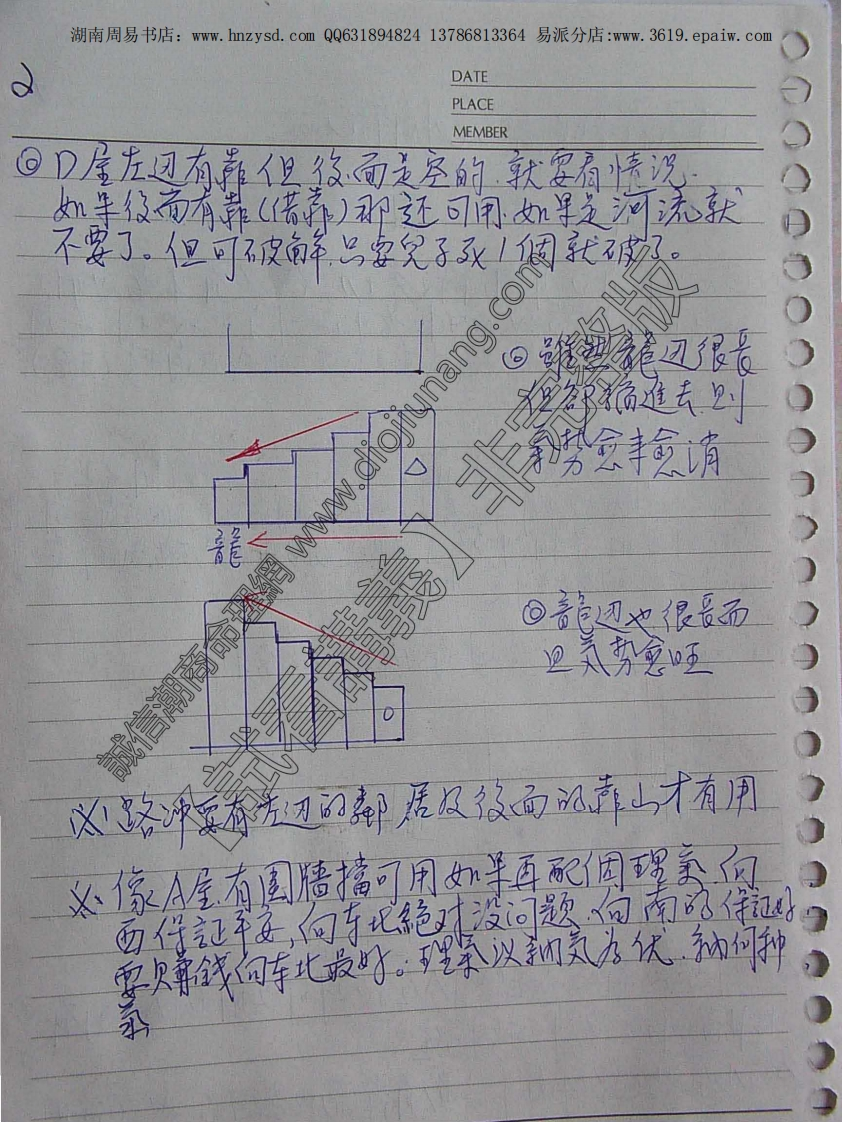 湖南周易书店：www.hnzysd.com QQ631894824 13786813364 易派分店:www.3619.epaiw.com
2
DATE
PLACE
MEMBER
◎D屋左边有靠但後面是空的.就要看情况.
如果後面有靠(借靠)那还可用.如果是河流就
不要了。但可破解.只要兒子死1個就破了。
◎雖然龍边很長
但卻縮進去.則
氣势愈來愈消
龍
◎龍边也很長而
且氣势愈旺
※路沖要有左边的鄰居及後面的靠山才有用
※像A屋.有圍牆擋可用如果再配個理氣.向
西保証平安,向东北絕对没问题.向南的保証好
要賺錢向东北最好。理氣以納氣為优.納何种
氣
誠信潮商命理網 www.diojiunang.com
【試看講義】非完整版